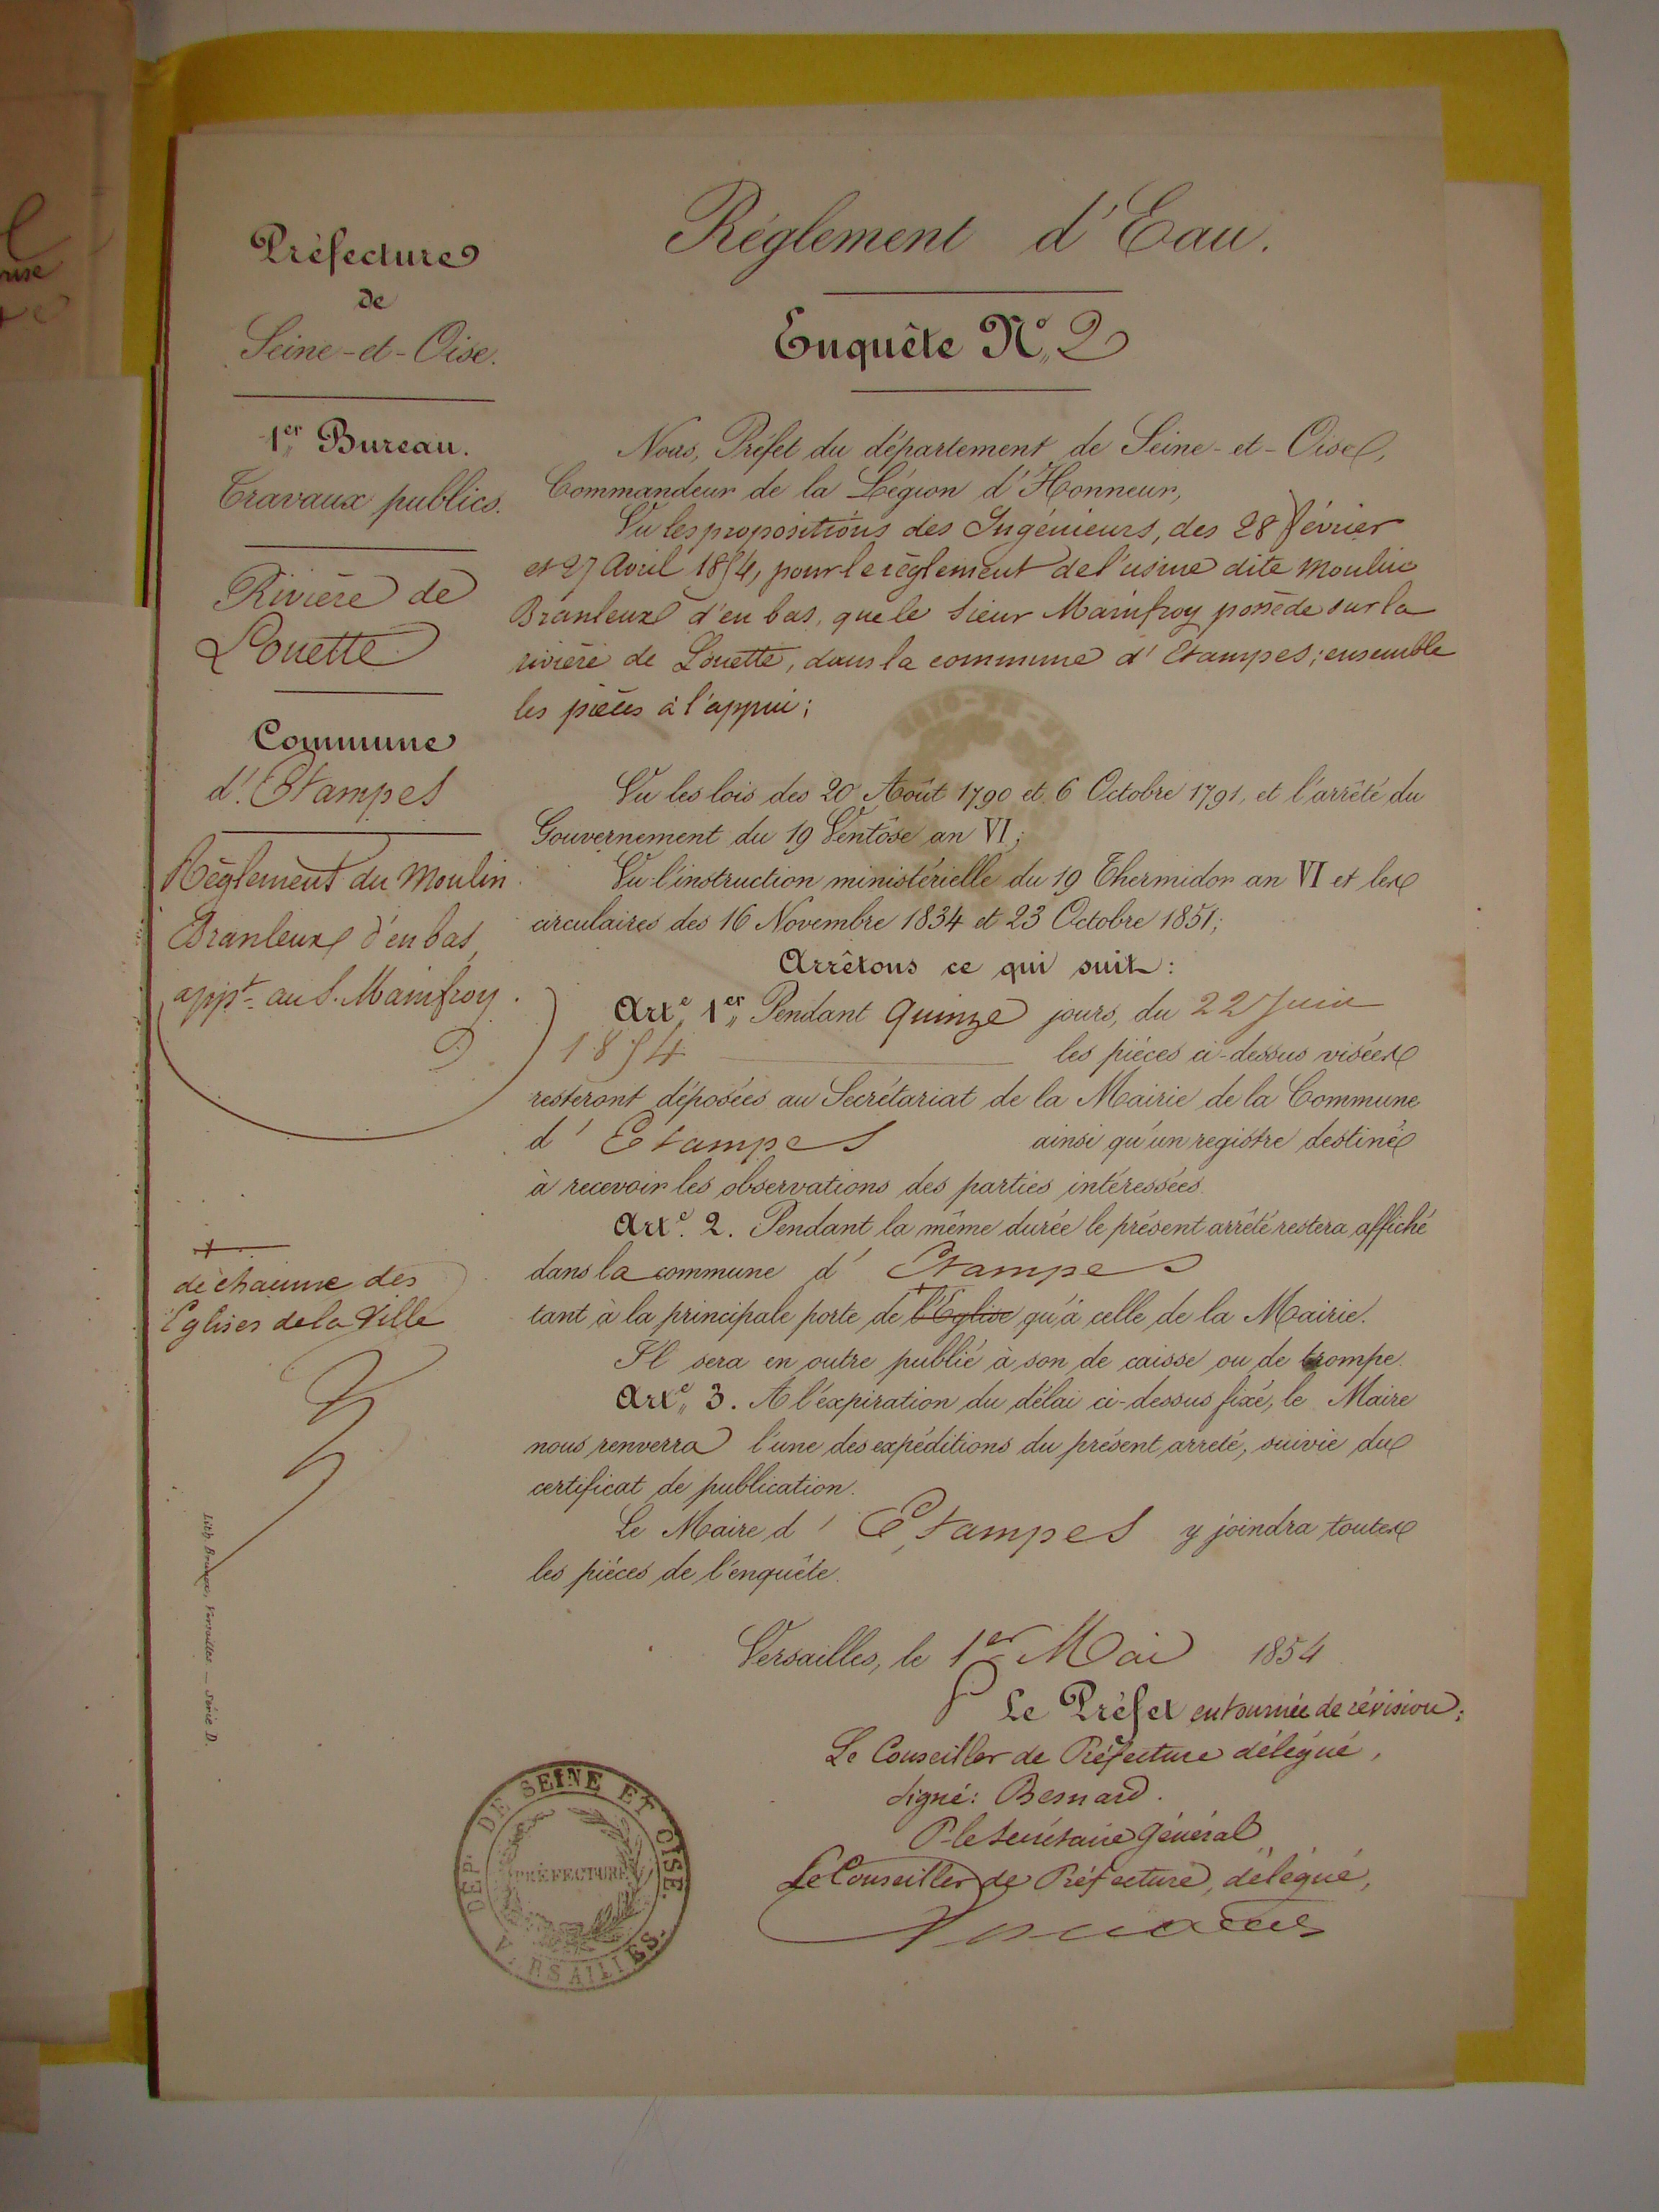 Préfecture
de
Seine-et-Oise.
1er Bureau.
Travaux publics.
Rivière de
Louette
Commune
d'Etampes
Règlement du Moulin
Branleux d'en bas,
appt. au S. Mainfroy.
+
de chacune des
Eglises de la Ville
Lith. Brunox, Versailles — Série D.
Réglement d'Eau.
Enquête No. 2
Nous, Préfet du département de Seine-et-Oise,
Commandeur de la Légion d'Honneur,
Vu les propositions des Ingénieurs, des 28 février
et 27 avril 1854, pour le règlement de l'usine dite Moulin
Branleux d'en bas, que le Sieur Mainfroy possède sur la
rivière de Louette, dans la commune d'Etampes; ensemble
les pièces à l'appui;
Vu les lois des 20 Août 1790 et 6 Octobre 1791, et l'arrêté du
Gouvernement du 19 Ventôse an VI;
Vu l'instruction ministérielle du 19 Thermidor an VI et les
circulaires des 16 Novembre 1834 et 23 Octobre 1851;
Arrêtons ce qui suit:
Arte. 1er. Pendant quinze jours, du 22 Juin
1854 les pièces ci-dessus visées
resteront déposées au Secrétariat de la Mairie de la Commune
d'Etampes ainsi qu'un registre destiné
à recevoir les observations des parties intéressées.
Arte. 2. Pendant la même durée le présent arrêté restera affiché
dans la commune d'Etampes
+
tant à la principale porte de l'Eglise qu'à celle de la Mairie.
Il sera en outre publié à son de caisse ou de trompe.
Arte. 3. A l'expiration du délai ci-dessus fixé, le Maire
nous renverra l'une des expéditions du présent arreté, suivie du
certificat de publication.
Le Maire d'Etampes y joindra toutes
les pièces de l'enquête.
Versailles, le 1er Mai 1854
P Le Préfet en tournée de révision:
Le Conseiller de Préfecture délégué,
signé: Besnard.
P. le Secrétaire Général
Le Conseiller de Préfecture, délégué,
DEP. DE SEINE ET OISE.
PRÉFECTURE
VERSAILLES.